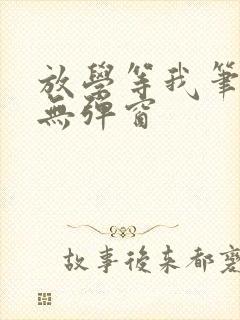 放學等我筆
無彈窗
故事後來都薨